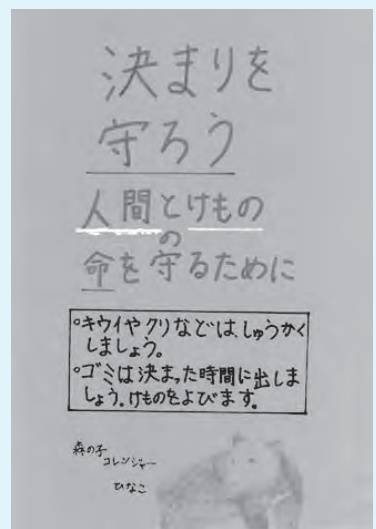 決まりを
守ろう
人間とけもの
の
命を守るために
◦キウイやクリなどは、しゅうかく
しましょう。
◦ゴミは決まった時間に出しま
しょう。けものをよびます。
森の子
コレンジャー
ひなこ